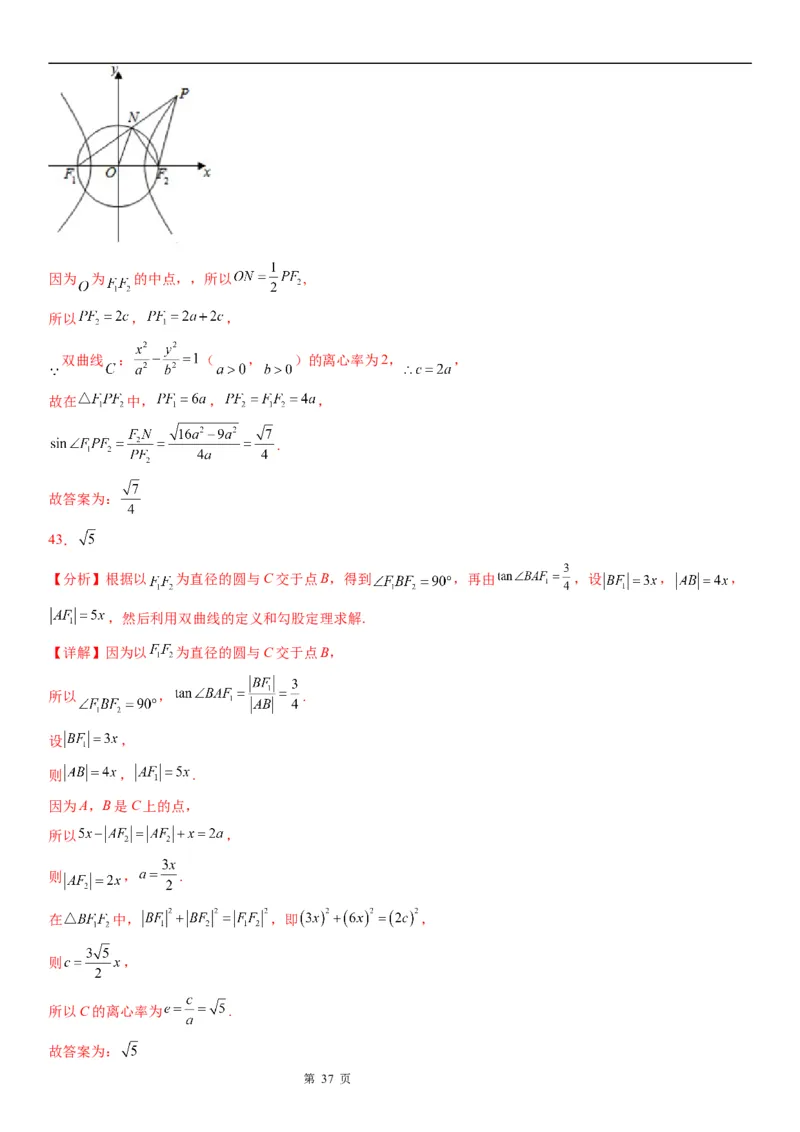 y
P
N
F₁ O F₂ x
因为O为F₁F₂的中点，，所以ON=\frac{1}{2}PF₂,
所以PF₂=2c，PF₁=2a+2c，
∵双曲线C：\frac{x²}{a²}-\frac{y²}{b²}=1（a>0，b>0）的离心率为2，∴c=2a，
故在△F₁PF₂中，PF₁=6a，PF₂=F₁F₂=4a，
sin∠F₁PF₂=\frac{F₂N}{PF₂}=\frac{\sqrt{16a²-9a²}}{4a}=\frac{\sqrt{7}}{4}.
故答案为：\frac{\sqrt{7}}{4}
43．\sqrt{5}
【分析】根据以F₁F₂为直径的圆与C交于点B，得到∠F₁BF₂=90°，再由tan∠BAF₁=\frac{3}{4}，设|BF₁|=3x，|AB|=4x，
|AF₁|=5x，然后利用双曲线的定义和勾股定理求解.
【详解】因为以F₁F₂为直径的圆与C交于点B，
所以∠F₁BF₂=90°，tan∠BAF₁=\frac{|BF₁|}{|AB|}=\frac{3}{4}.
设|BF₁|=3x，
则|AB|=4x，|AF₁|=5x.
因为A，B是C上的点，
所以5x-|AF₂|=|AF₂|+x=2a，
则|AF₂|=2x，a=\frac{3x}{2}.
在△BF₁F₂中，|BF₁|²+|BF₂|²=|F₁F₂|²，即(3x)²+(6x)²=(2c)²，
则c=\frac{3\sqrt{5}}{2}x，
所以C的离心率为e=\frac{c}{a}=\sqrt{5}.
故答案为：\sqrt{5}
第 37 页